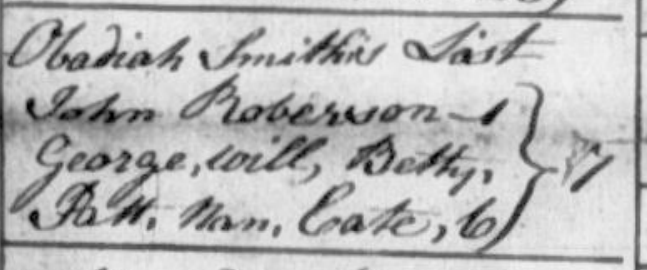 Obadiah Smith's List
John Roberson – 1
George, Will, Betty,
Patt, Nan, Cate, 6 } 7